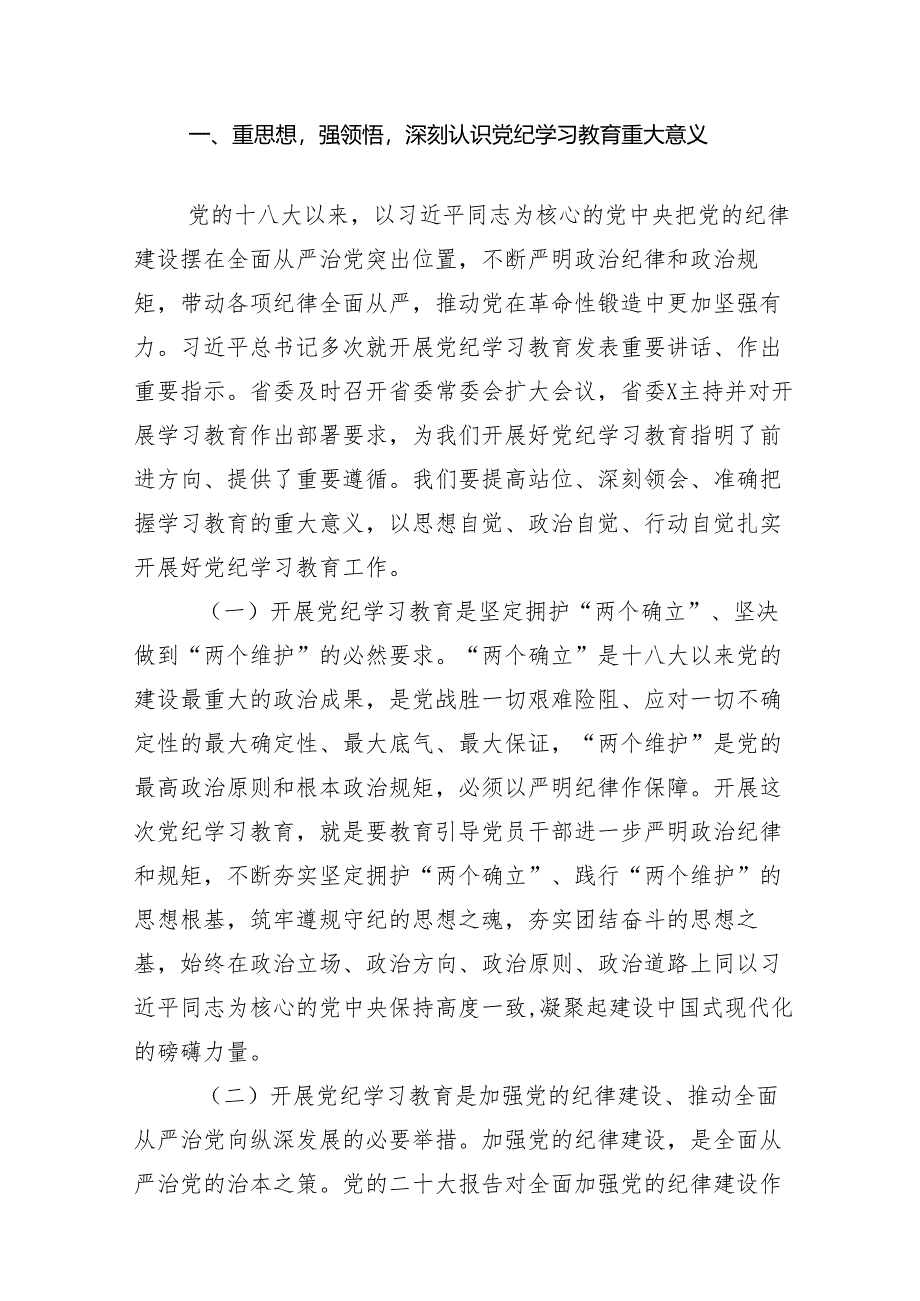 一、重思想，强领悟，深刻认识党纪学习教育重大意义
党的十八大以来，以习近平同志为核心的党中央把党的纪律
建设摆在全面从严治党突出位置，不断严明政治纪律和政治规
矩，带动各项纪律全面从严，推动党在革命性锻造中更加坚强有
力。习近平总书记多次就开展党纪学习教育发表重要讲话、作出
重要指示。省委及时召开省委常委会扩大会议，省委X主持并对开
展学习教育作出部署要求，为我们开展好党纪学习教育指明了前
进方向、提供了重要遵循。我们要提高站位、深刻领会、准确把
握学习教育的重大意义，以思想自觉、政治自觉、行动自觉扎实
开展好党纪学习教育工作。
（一）开展党纪学习教育是坚定拥护“两个确立”、坚决
做到“两个维护”的必然要求。“两个确立”是十八大以来党的
建设最重大的政治成果，是党战胜一切艰难险阻、应对一切不确
定性的最大确定性、最大底气、最大保证，“两个维护”是党的
最高政治原则和根本政治规矩，必须以严明纪律作保障。开展这
次党纪学习教育，就是要教育引导党员干部进一步严明政治纪律
和规矩，不断夯实坚定拥护“两个确立”、践行“两个维护”的
思想根基，筑牢遵规守纪的思想之魂，夯实团结奋斗的思想之
基，始终在政治立场、政治方向、政治原则、政治道路上同以习
近平同志为核心的党中央保持高度一致,凝聚起建设中国式现代化
的磅礴力量。
（二）开展党纪学习教育是加强党的纪律建设、推动全面
从严治党向纵深发展的必要举措。加强党的纪律建设，是全面从
严治党的治本之策。党的二十大报告对全面加强党的纪律建设作